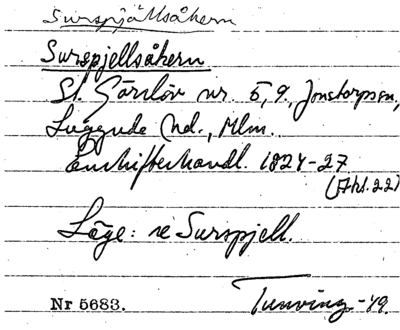 Surspjällsåkern
Surspjellsåkern
St. Görslöv nr. 5, 9, Jonstorpsn,
Luggude hd., Mlm.
Enskifteshandl. 1824-27
(Akt. 22)
Läge: se Surspjell.
Nr 5683. Tunving -49.